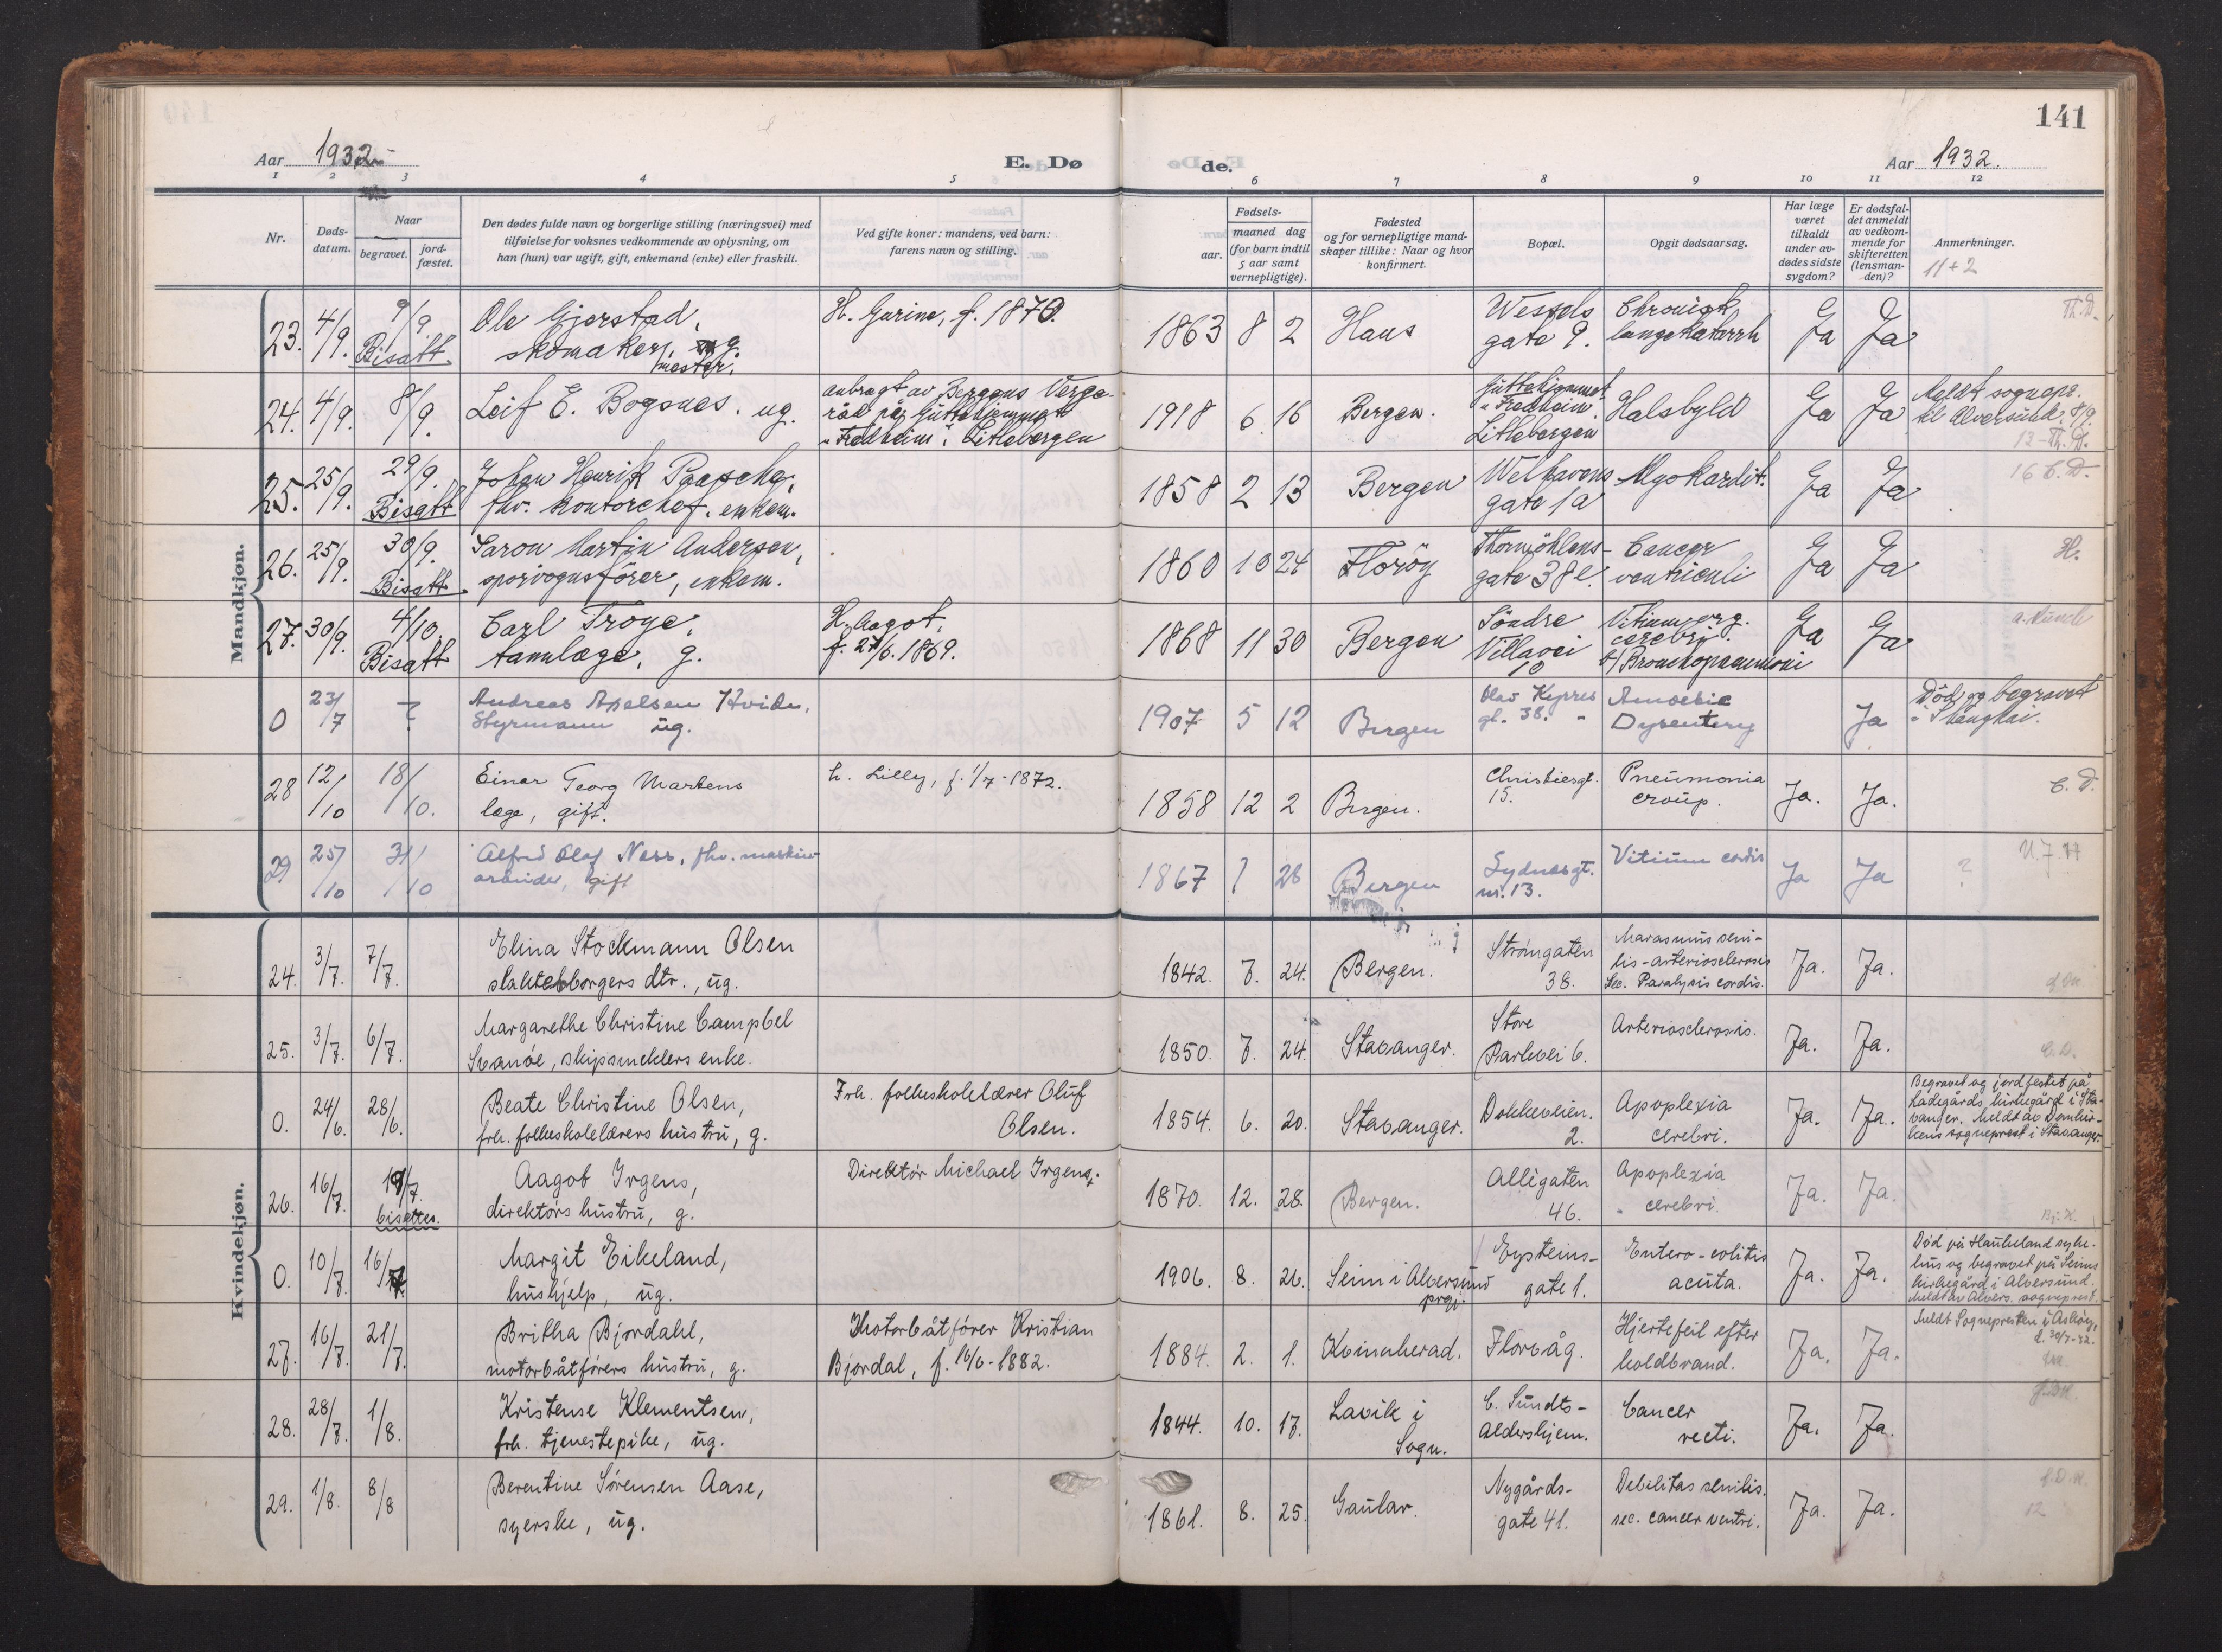 141
Aar 1932
E. Dø
de.
Aar 1932.
1 2 3 4 5 6 7 8 9 10 11 12
Nr.
Døds-
datum.
Naar
begravet.
jord-
fæstet.
Den dødes fulde navn og borgerlige stilling (næringsvei) med
tilføielse for voksnes vedkommende av oplysning, om
han (hun) var ugift, gift, enkemand (enke) eller fraskilt.
Ved gifte koner: mandens, ved barn:
farens navn og stilling.
Fødsels-
aar.
maaned dag
(for barn indtil
5 aar samt
vernepligtige).
Fødested
og for vernepligtige mand-
skaper tillike: Naar og hvor
konfirmert.
Bopæl.
Opgit dødsaarsag.
Har læge
været
tilkaldt
under av-
dødes sidste
sygdom?
Er dødsfal-
det anmeldt
av vedkom-
mende for
skifteretten
(lensman-
den)?
Anmerkninger.
11+2
Mandkjøn.
23. 4/9. 9/9. Bisatt.
Ole Gjerstad,
skomaker, g.
mester.
H. Gurine, f. 1870.
1863 8 2 Haus
Wessels
gate 9.
Chronisk
lungekatarrh
Ja Ja
Th.D.
24. 4/9. 8/9.
Leif E. Bogsnes. ug.
anbragt av Bergens Verge-
råd på Guttehjemmet
"Fredheim" i Litlebergen
1918 6 16 Bergen.
Guttehjemmet
"Fredheim".
Litlebergen
Halsbyld
Ja Ja
Meldt sognepr.
til Alversund, 8/9.
12-Th.D.
25. 25/9. 29/9. Bisatt
Johan Henrik Paasche,
fhv. kontorchef. enkem.
1858 2 13 Bergen
Welhavens
gate 1a
Myokardit.
Ja Ja
16 C.D.
26. 25/9. 30/9. Bisatt
Saron Martin Andersen,
sporvognsfører, enkem.
1860 10 24 Florøy
Thormøhlens-
gate 38 e.
Cancer
ventriculi
Ja Ja
H.
27. 30/9. 4/10. Bisatt
Carl Troye,
tannlæge, g.
H. Aagot,
f. 27/6. 1869.
1868 11 30 Bergen
Søndre
Villavei
10
Vitium org.
cerebri.
b/ Bronchopneumoni
Ja Ja
a. Munch
0 23/7 ?
Andreas Apelsen Hvide,
Styrmann ug.
1907 5 12 Bergen
Olav Kyrres
gt. 38.
Amoebic
Dysentery
Ja
Død og begravet
i Shanghai.
28 12/10 18/10.
Einar Georg Martens
læge, gift.
h. Lilly, f. 1/7-1872.
1858 12 2 Bergen.
Christiesgt.
15.
Pneumonia
croup.
Ja. Ja.
C.D.
29 25/10 31/10
Alfred Olaf Ness, fhv. maskin-
arbeider, gift
1867 1 28 Bergen
Sydnesgt.
nr. 13.
Vitium cordis
Ja Ja
?
Kvindekjøn.
24. 3/7. 7/7.
Elina Stockmann Olsen
slakterborgers dtr., ug.
1842. 7. 24. Bergen.
Strømgaten
38.
Marasmus seni-
lis - arteriosclerosis
Sec. Paralysis cordis.
Ja. Ja.
25. 3/7. 6/7.
Margarethe Christine Campbel
Svanøe, skipsmeklers enke.
1850. 7. 24. Stavanger.
Store
Parkvei 6.
Arteriosclerosis.
Ja. Ja.
C.D.
0. 24/6. 28/6.
Beate Christine Olsen,
frh. folkeskolelærers hustru, g.
Frh. folkeskolelærer Oluf
Olsen.
1854. 6. 20. Stavanger.
Dokkeveien.
2.
Apoplexia
cerebri.
Ja. Ja.
Begravet og jordfestet på
Ladegårds kirkegård i Sta-
vanger. Meldt av Domkir-
kens sogneprest i Stavanger.
26. 16/7. 19/7. bisettes.
Aagot Irgens,
direktørs hustru, g.
Direktør Michael Irgens.
1870. 12. 28. Bergen.
Allégaten
46.
Apoplexia
cerebri.
Ja. Ja.
Bj.H.
0. 10/7. 16/7.
Margit Eikeland,
hushjelp, ug.
1906. 8. 26. Seim i Alversund
prgj.
Eysteins-
gate 1.
Entero-colitis
acuta.
Ja. Ja.
Død på Haukeland syke-
hus og begravet på Seims
kirkegård i Alversund.
Meldt av Alvers. sogneprest.
27. 16/7. 21/7.
Britha Bjordahl,
motorbåtførers hustru, g.
Motorbåtfører Kristian
Bjordal, f. 16/6-1882.
1884. 2. 1. Kvinnherad.
Florvåg.
Hjertefeil efter
koldbrand.
Ja. Ja.
Meldt Sognepresten i Askøy,
28. 28/7. 1/8.
Kristense Klementsen,
frh. tjenestepike, ug.
1844. 10. 17. Lavik i
Sogn.
C. Sundts-
Aldershjem.
Cancer
recti.
Ja. Ja.
29. 1/8. 8/8
Berentine Sørensen Aase,
syerske, ug.
1861. 8. 25. Gaular.
Nygårds-
gate 41.
Debilitas senilis.
sec. cancer ventri.
Ja. Ja.
12